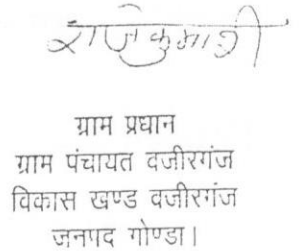 राजकुमारी
ग्राम प्रधान
ग्राम पंचायत वजीरगंज
विकास खण्ड वजीरगंज
जनपद गोण्डा।